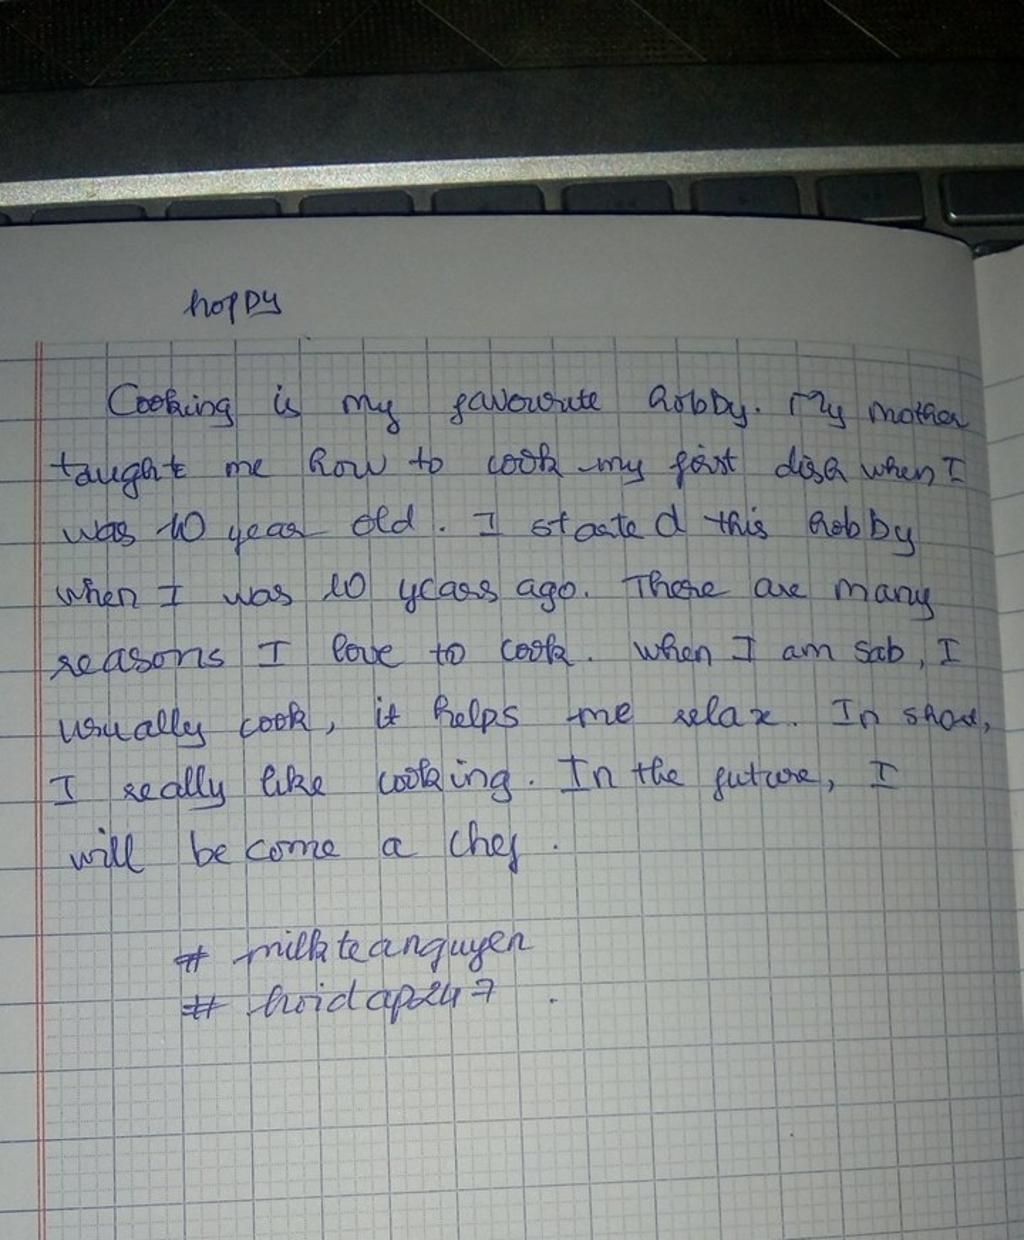 hoppy
Cooking is my favourite hobby. My mother
taught me how to cook my first dish when I
was 10 year old. I started this hobby
when I was 10 years ago. There are many
reasons I love to cook. When I am sab, I
usually cook, it helps me relax. In short,
I really like cooking. In the future, I
will become a chef.
# milkteanguyen
# hoidap247.